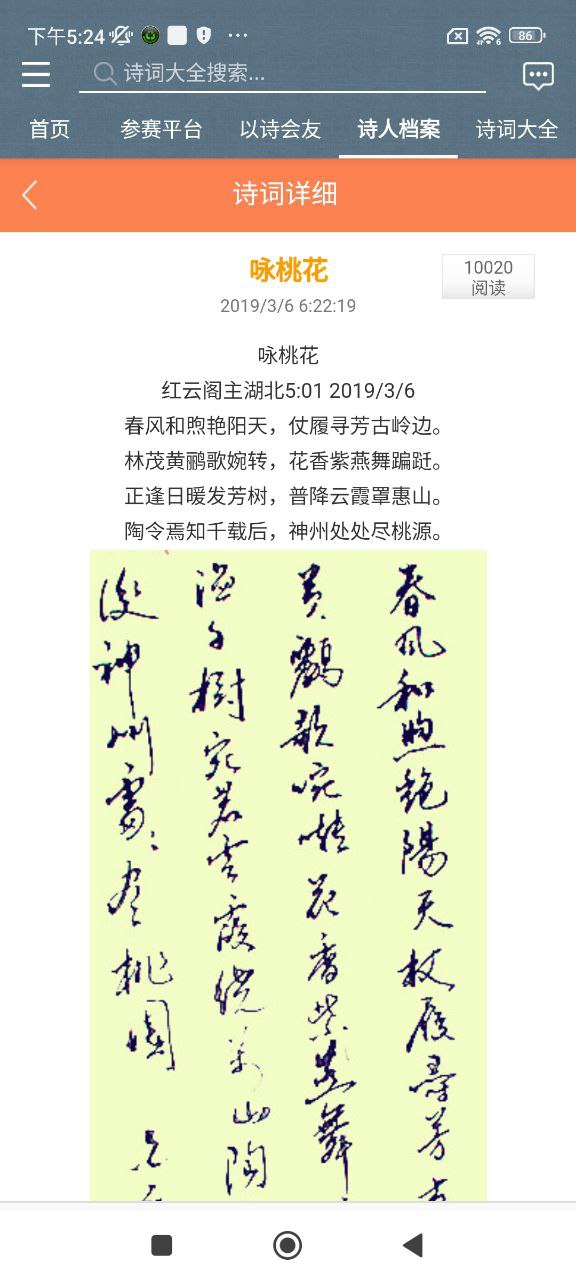 下午5:24
86
诗词大全搜索...
首页 参赛平台 以诗会友 诗人档案 诗词大全
诗词详细
咏桃花
10020
阅读
2019/3/6 6:22:19
咏桃花
红云阁主湖北5:01 2019/3/6
春风和煦艳阳天，仗履寻芳古岭边。
林茂黄鹂歌婉转，花香紫燕舞蹁跹。
正逢日暖发芳树，普降云霞罩惠山。
陶令焉知千载后，神州处处尽桃源。
春风和煦艳陽天杖履尋芳古
黄鸝歌啭花香紫燕舞
樹宛若雲霞绕萬山陶
後神州處處尽桃園